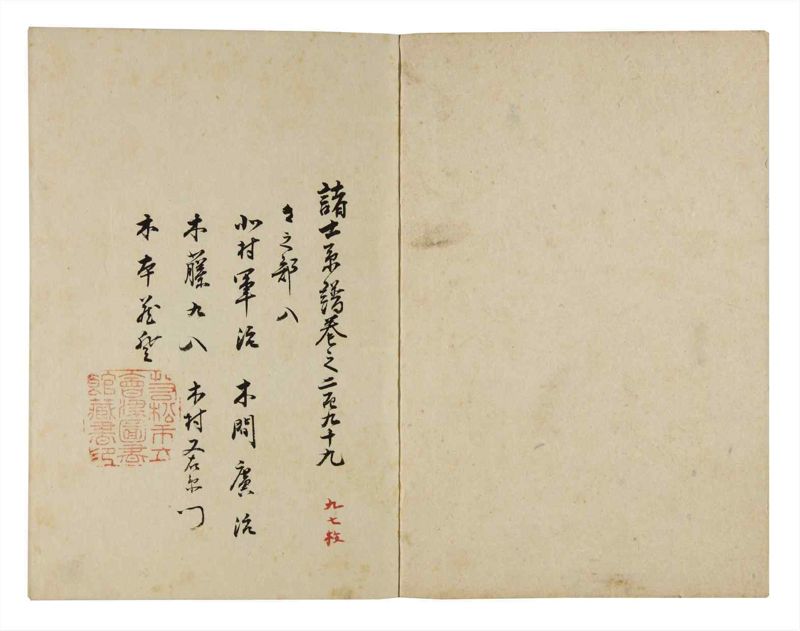 諸士系譜巻之二百九十九
九七枚
き之部 八
北村軍治 木間廣治
木藤九八 木村又右衛門
木本
若松市立
會津圖書
館藏書印